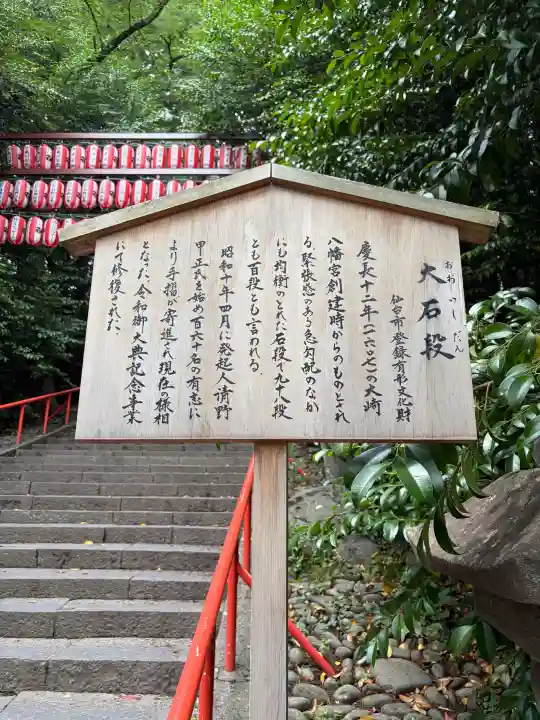 大石段
おおいしだん
仙台市登録有形文化財
慶長十二年(一六〇七)の大崎
八幡宮創建時からのものとされ
る。緊張感のある急勾配のなか
にも均衡のとれた石段で九十八段
とも百段とも言われる。
昭和八年四月に発起人清野
甲正氏を始め百六十名の有志に
より手摺が寄進され現在の様相
となった。令和御大典記念事業
にて修復された。